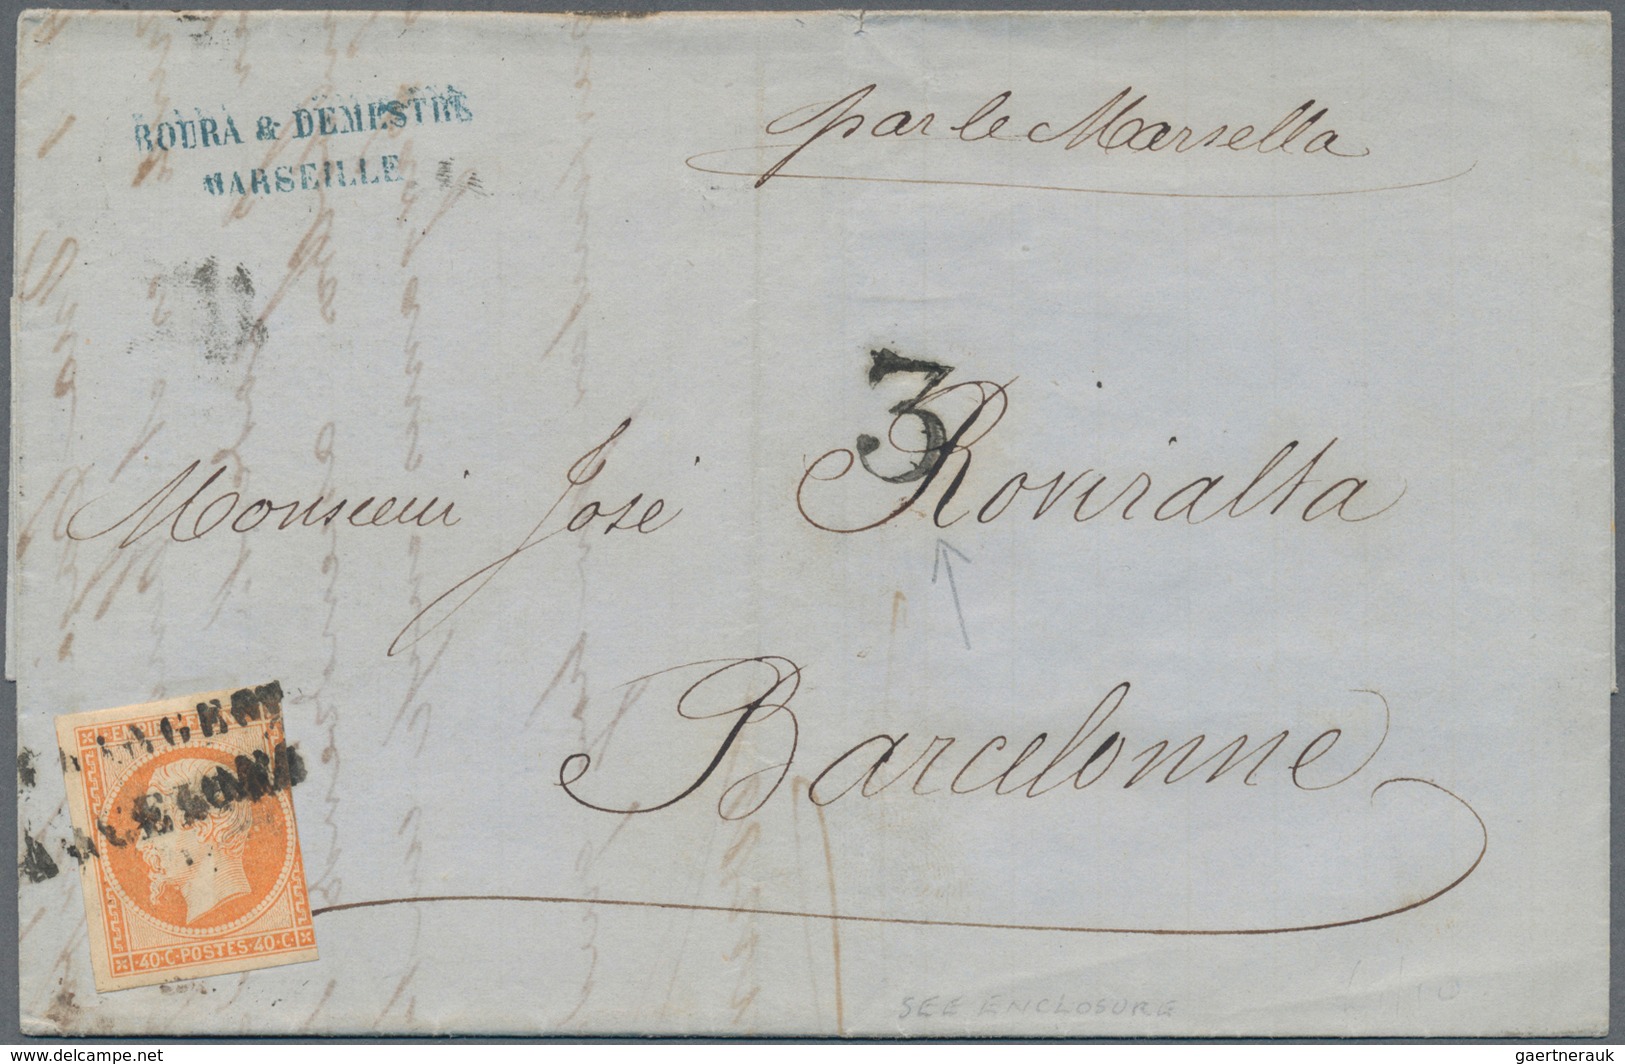 ROURA & DEMESTRE
MARSEILLE
par le Marsella
3
Monsieur José Roviralta
Barcelonne
EMPIRE
40·C·POSTES·40·C
SEE ENCLOSURE
www.delcampe.net
gaertnerauk